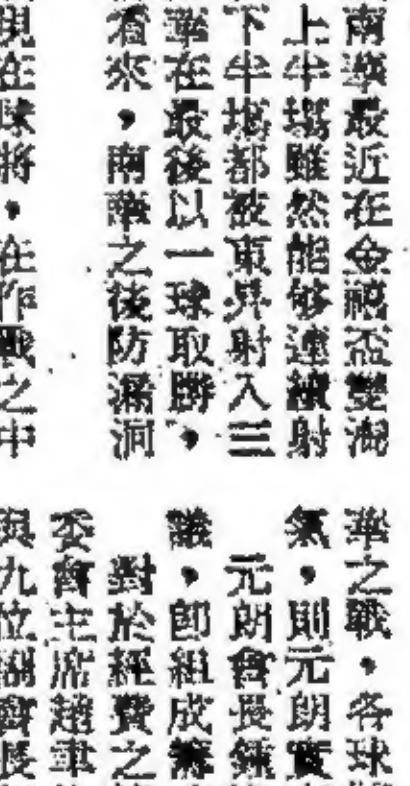 南華最近在金禧盃雙湖
上半場雖然能够連續射
下半場都被東昇射入三
華在最後以一球取勝，
看來，南華之後防漏洞
現在球將，在作戰之中
華之戰，各球
氣，則元朗實
元朗會長鍾
議，即組成籌
對於經費之
委會主席趙
與九位副會長